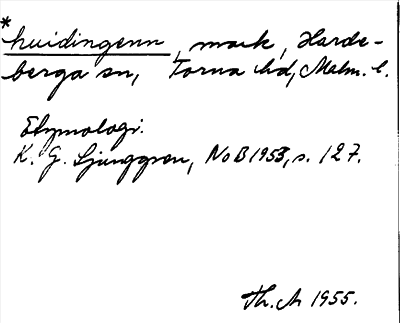 *huidingenn, mark, Harde-
berga sn, Torna hd, Malm. l.
Etymologi.
K. G. Ljunggren, NoB 1953, s. 127.
Th. A 1955.